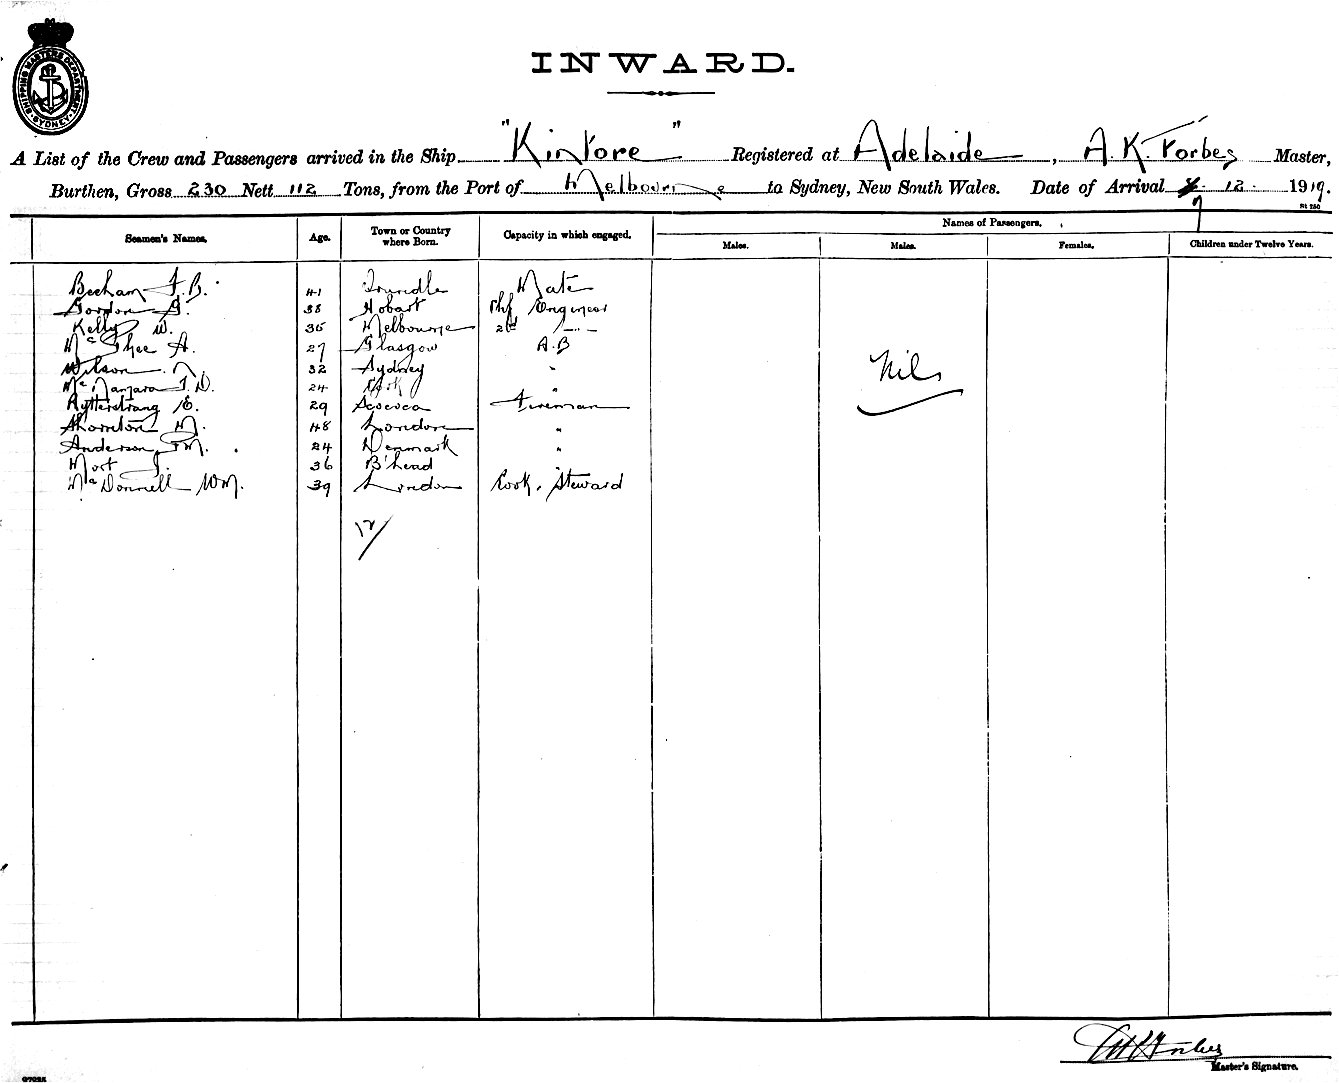 SHIPPING MASTERS DEPARTMENT SYDNEY
INWARD.
A List of the Crew and Passengers arrived in the Ship "Kintore" Registered at Adelaide, A. K. Forbes Master,
Burthen, Gross 230 Nett 112 Tons, from the Port of Melbourne to Sydney, New South Wales. Date of Arrival 7 12 1919.
Seamen's Names. Age. Town or Country where Born. Capacity in which engaged. Names of Passengers.
Males. Males. Females. Children under Twelve Years.
41 Mate
Gordon G. 38 Hobart Chf Engineer
Kelly W. 36 Melbourne 2nd "
McPhee A. 27 Glasgow A.B
Wilson 32 Sydney "
24 "
29 Fireman
Thornton 48 London "
Anderson 24 Denmark "
Mort J. 36 B'head
McDonnell Wm. 39 London Cook. Steward
Nil
12/
Master's Signature.